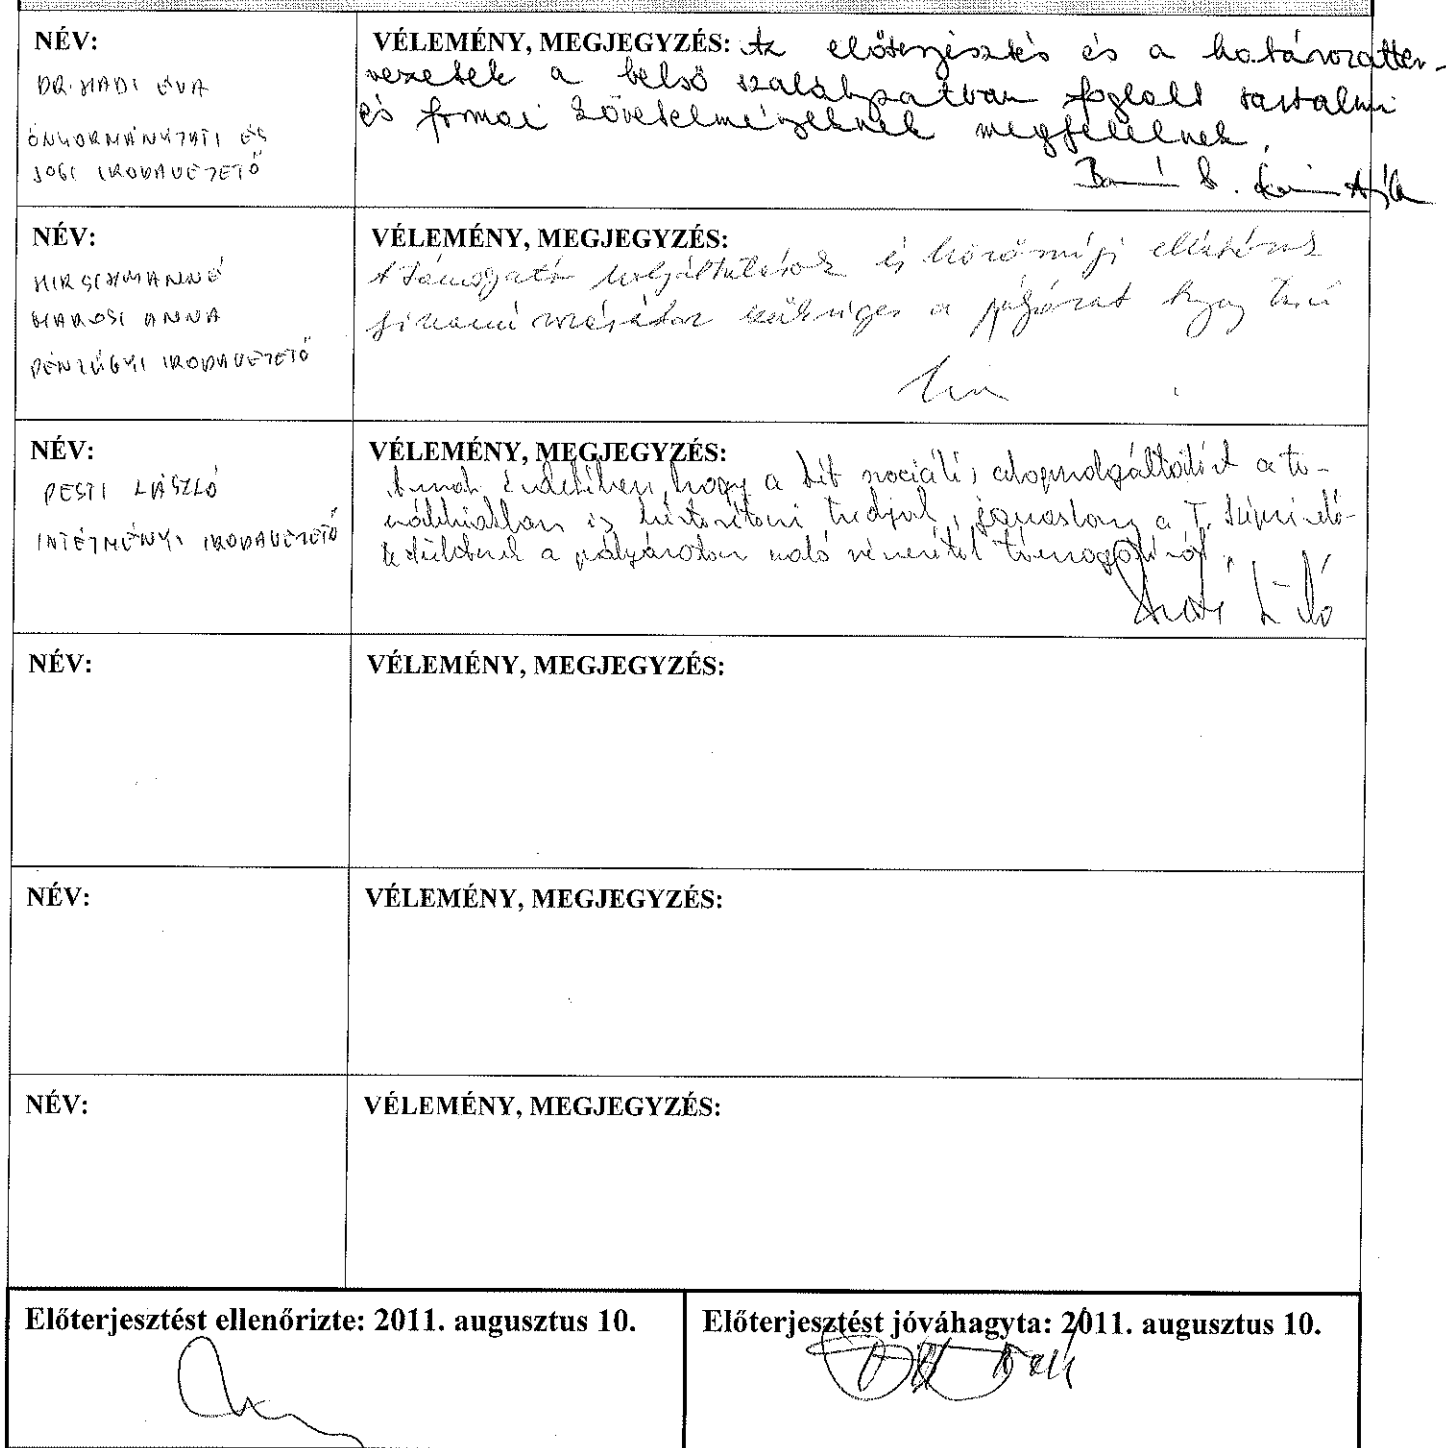 NÉV:
DR. HADI ÉVA
ÖNKORMÁNYZATI ÉS
JOGI IRODAVEZETŐ
VÉLEMÉNY, MEGJEGYZÉS: Az előterjesztés és a határozatter-
vezetek a belső szabályzatban foglalt tartalmi
és formai követelményeknek megfelelnek.
NÉV:
HIRSCHMANNÉ
MAROSI ANNA
PÉNZÜGYI IRODAVEZETŐ
VÉLEMÉNY, MEGJEGYZÉS:
A támogató szolgáltatások és közösségi ellátások
finanszírozásához szükséges a pályázat
NÉV:
PESTI LÁSZLÓ
INTÉZMÉNYI IRODAVEZETŐ
VÉLEMÉNY, MEGJEGYZÉS:
Annak érdekében, hogy a két szociális alapszolgáltatást a to-
vábbiakban is biztosítani tudjuk, javaslom a T. Képviselő-
testületnek a pályázaton való részvétel támogatását.
NÉV:
VÉLEMÉNY, MEGJEGYZÉS:
NÉV:
VÉLEMÉNY, MEGJEGYZÉS:
NÉV:
VÉLEMÉNY, MEGJEGYZÉS:
Előterjesztést ellenőrizte: 2011. augusztus 10.
Előterjesztést jóváhagyta: 2011. augusztus 10.